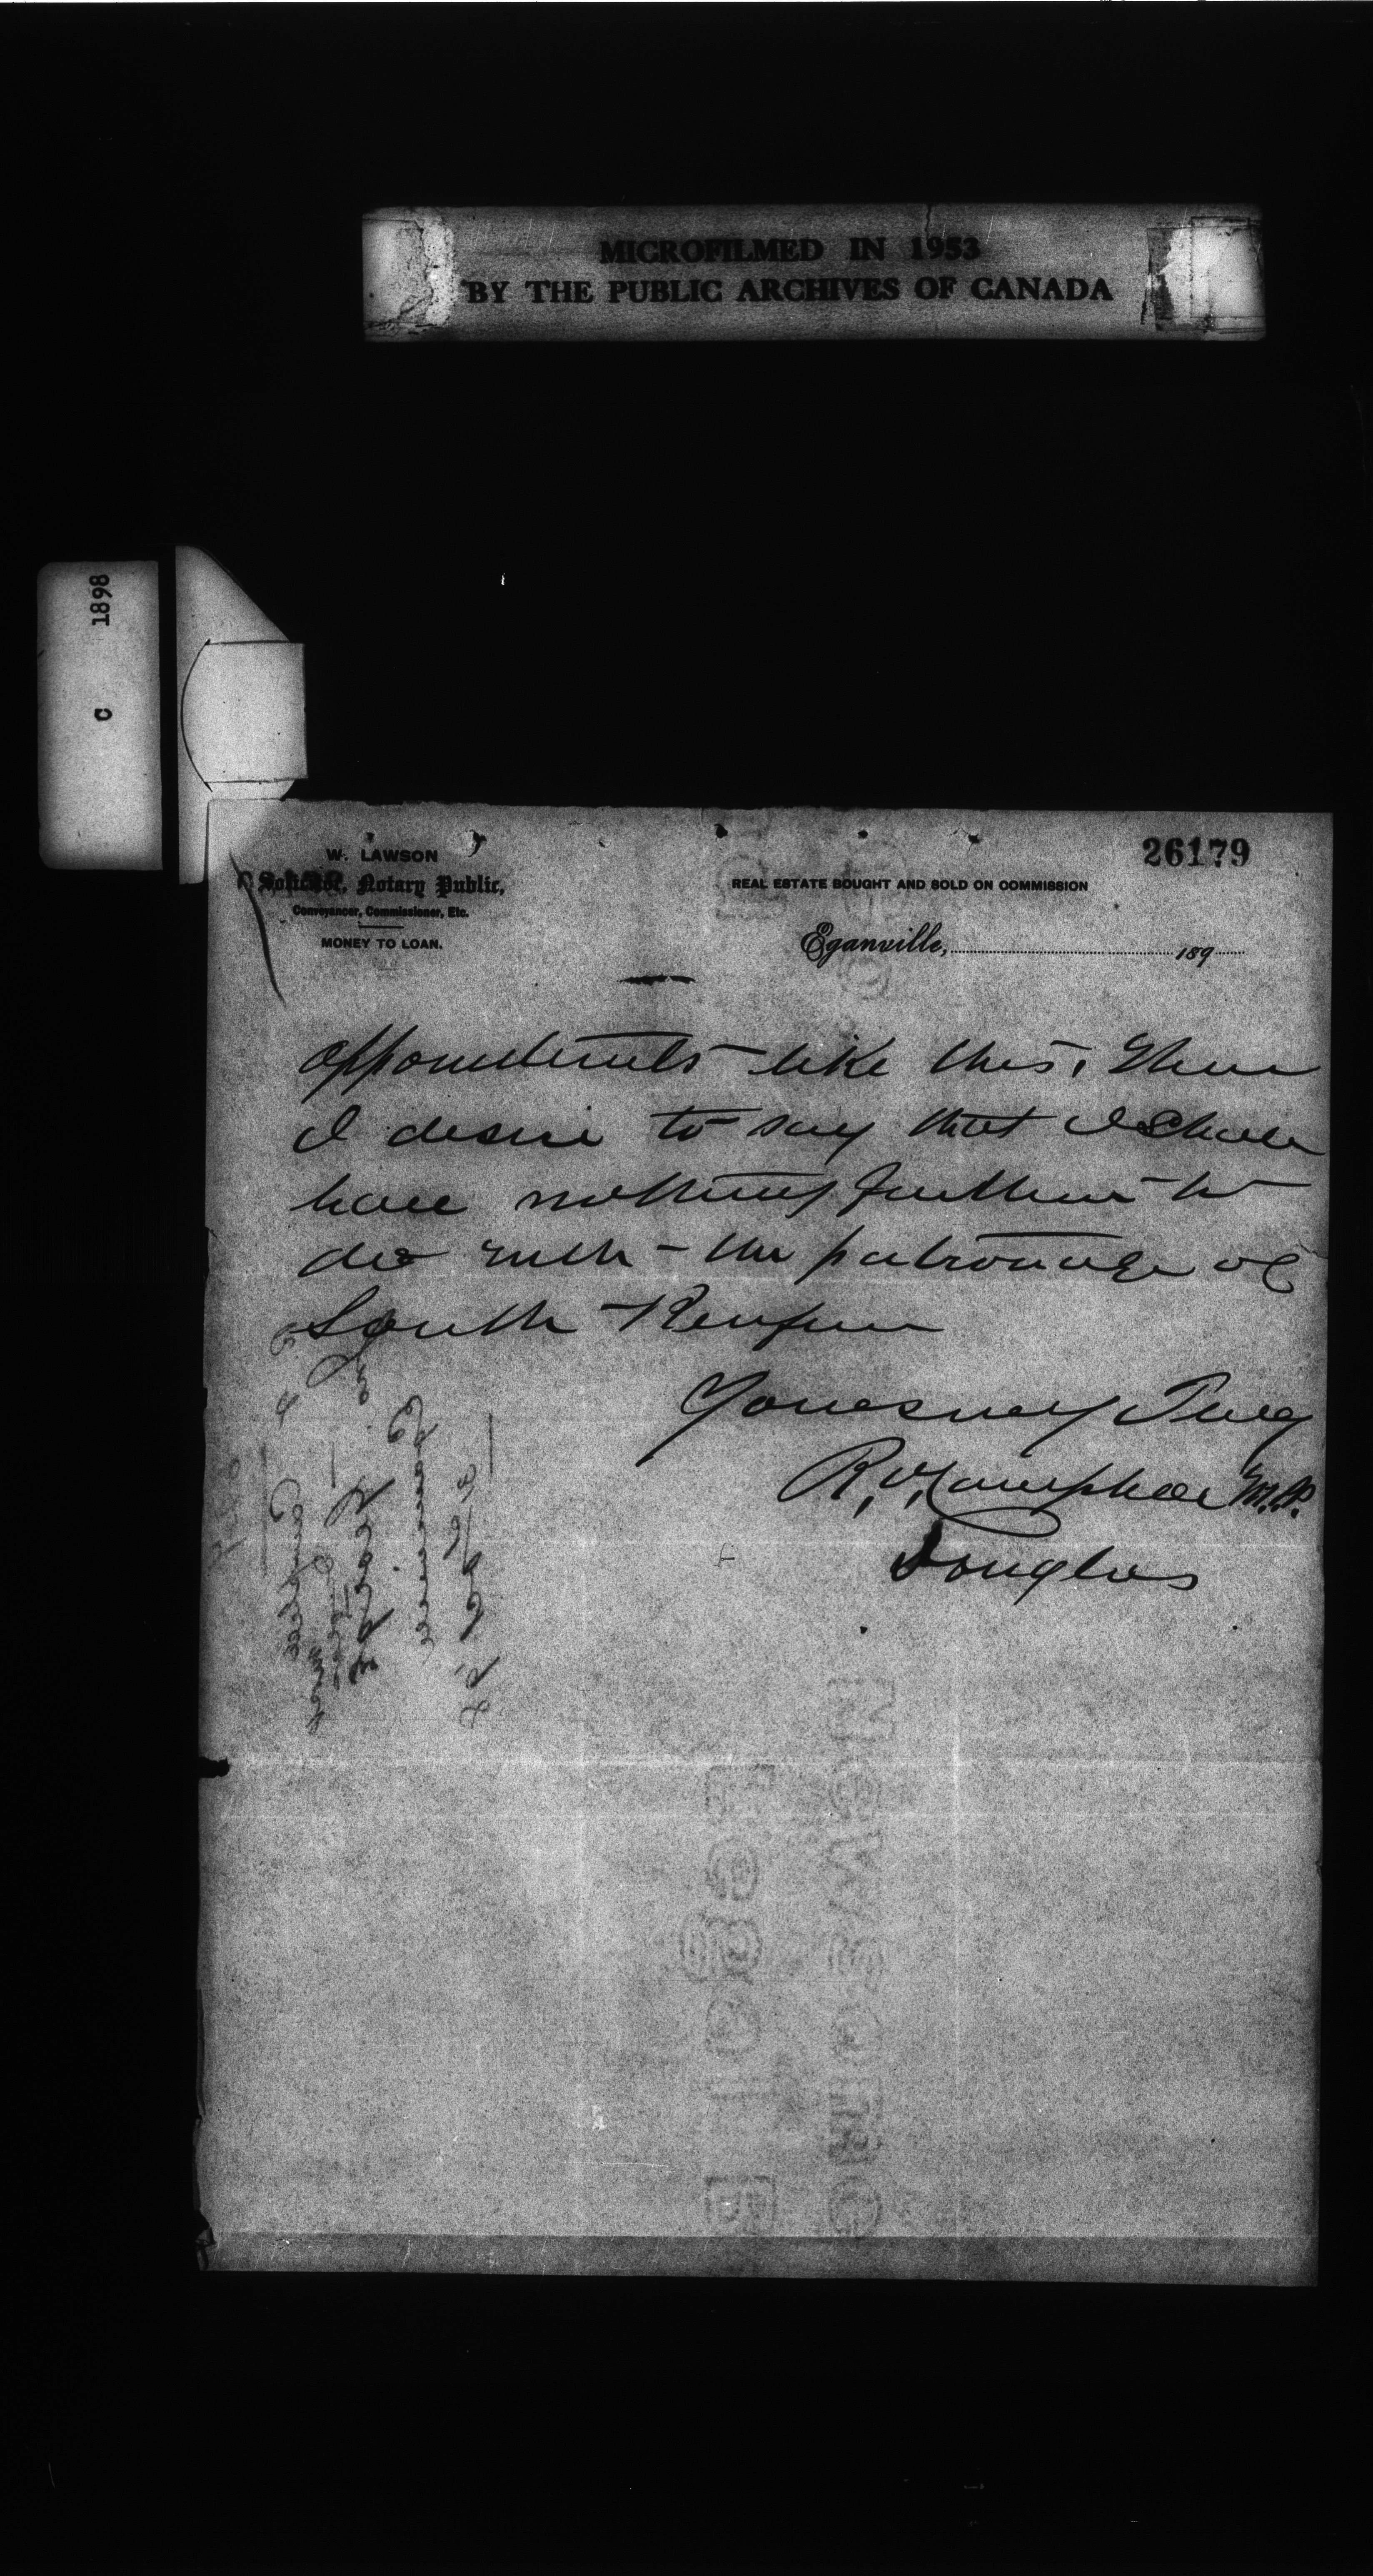 MICROFILMED IN 1953
BY THE PUBLIC ARCHIVES OF CANADA
C 1898
26179
W. LAWSON
Solicitor, Notary Public,
Conveyancer, Commissioner, Etc.
MONEY TO LOAN.
REAL ESTATE BOUGHT AND SOLD ON COMMISSION
Eganville, 189
appointments like this, then
I desire to say that I shall
have nothing further to
do with the patronage of
South Renfrew
Yours very Truly
R. Campbell M.P.
Douglas